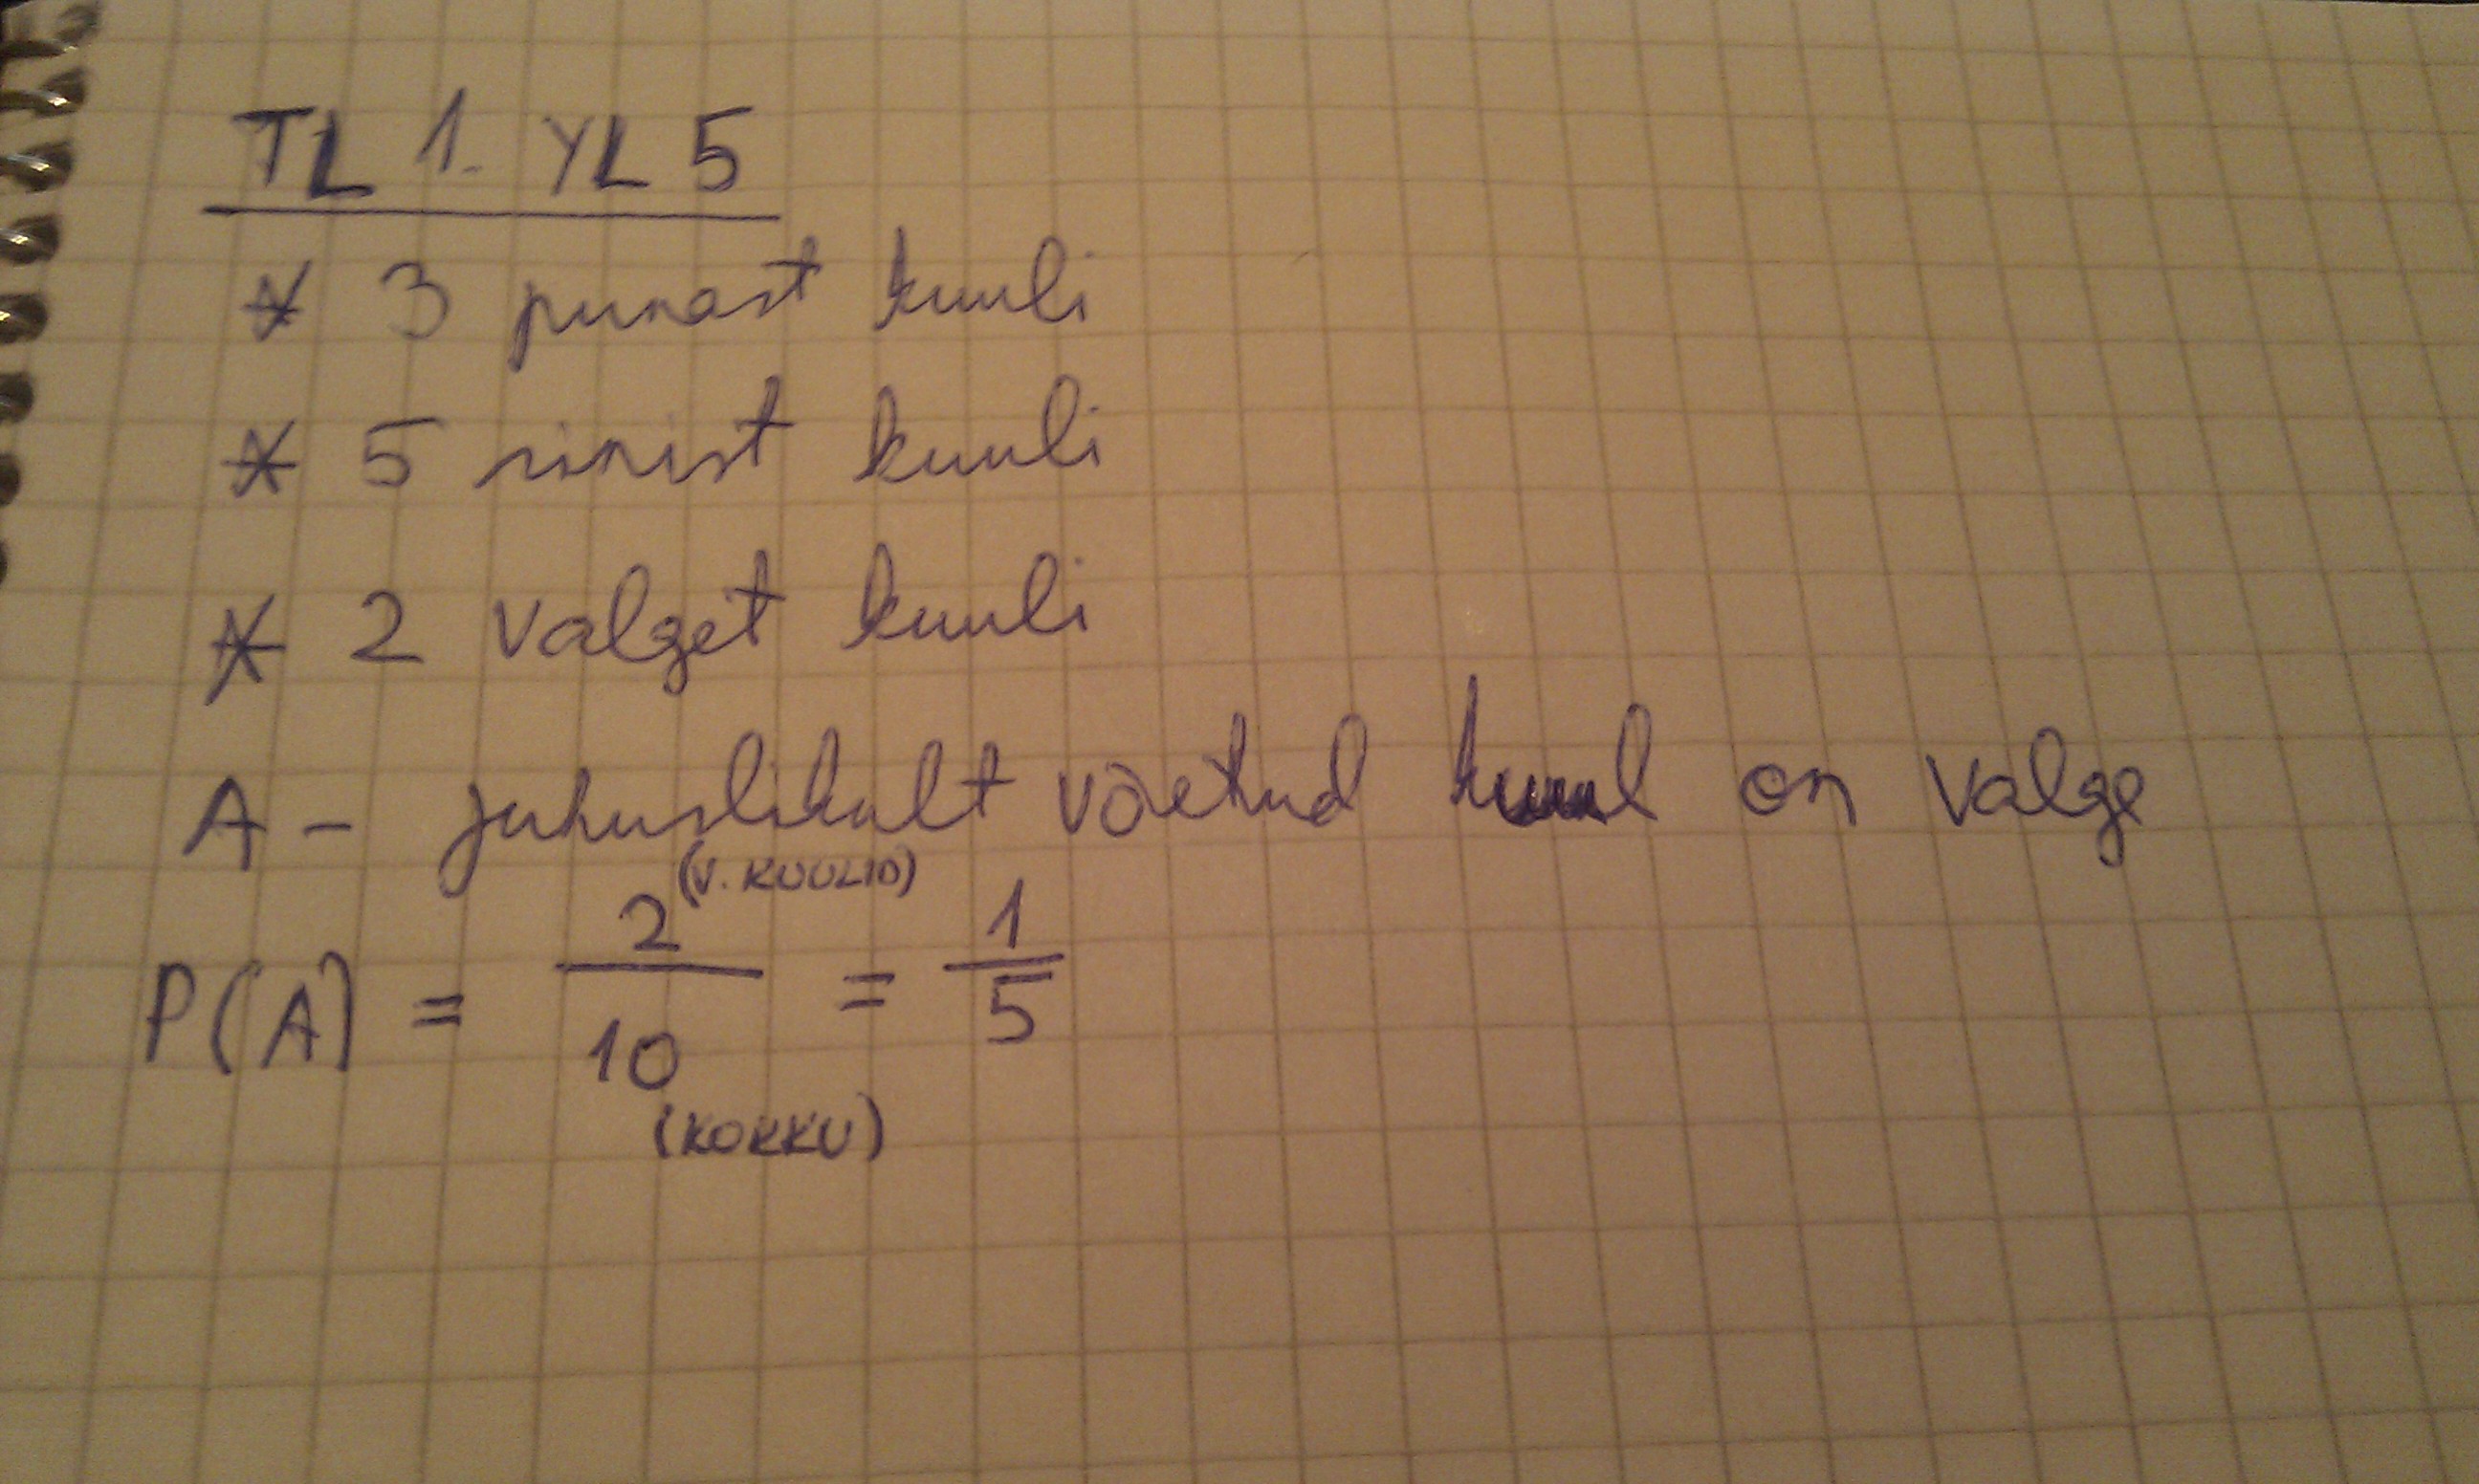 TL 1. YL 5
* 3 punast kuuli
* 5 sinist kuuli
* 2 valget kuuli
A - juhuslikult võetud kuul on valge
P(A) = 2 (V. KUULID) / 10 (KOKKU) = 1/5